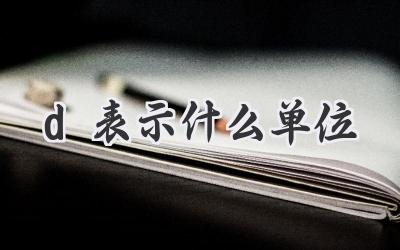 d 表示什么单位